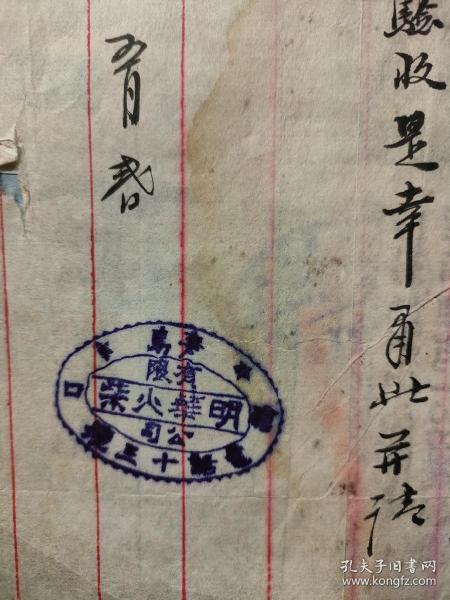 驗收是幸耑此並請
五月弍日
青島
有限
明華火柴
公司
電話十三號
孔夫子旧书网
www.kongfz.com